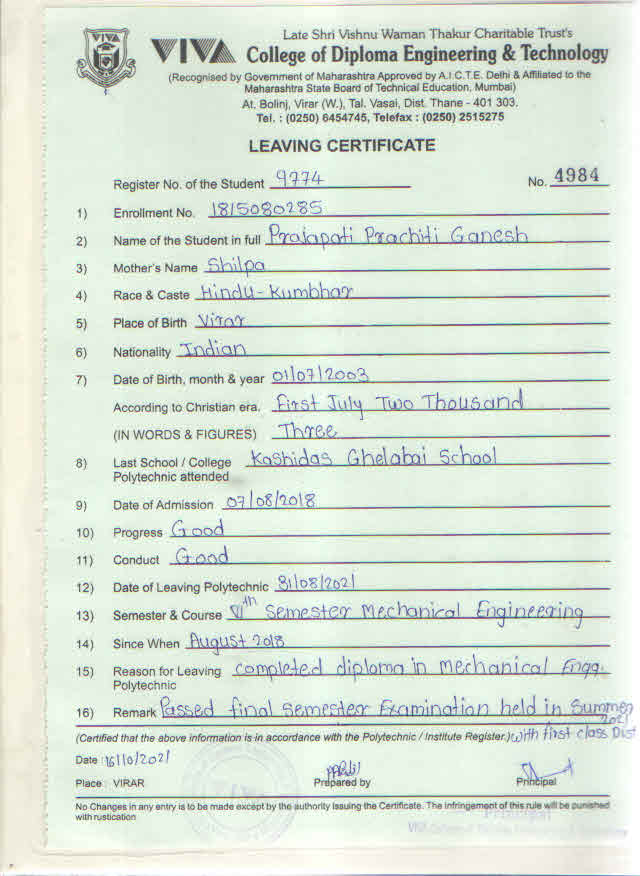 Late Shri Vishnu Waman Thakur Charitable Trust's
VIVA College of Diploma Engineering & Technology
(Recognised by Government of Maharashtra Approved by A.I.C.T.E. Delhi & Affiliated to the
Maharashtra State Board of Technical Education, Mumbai)
At, Bolinj, Virar (W.), Tal. Vasai, Dist. Thane - 401 303.
Tel. : (0250) 6454745, Telefax : (0250) 2515275
LEAVING CERTIFICATE
Register No. of the Student 9774 No. 4984
1) Enrollment No. 1815080285
2) Name of the Student in full Prajapati Prachiti Ganesh
3) Mother's Name Shilpa
4) Race & Caste Hindu-Kumbhar
5) Place of Birth Virar
6) Nationality Indian
7) Date of Birth, month & year 01/07/2003
According to Christian era. First July Two Thousand
(IN WORDS & FIGURES) Three
8) Last School / College Kashidas Ghelabai School
Polytechnic attended
9) Date of Admission 07/08/2018
10) Progress Good
11) Conduct Good
12) Date of Leaving Polytechnic 31/08/2021
13) Semester & Course VIth Semester Mechanical Engineering
14) Since When August 2018
15) Reason for Leaving completed diploma in Mechanical Engg.
Polytechnic
16) Remark Passed final semester Examination held in Summer
2021
(Certified that the above information is in accordance with the Polytechnic / Institute Register.) with first class Dist
Date : 16/10/2021
Place : VIRAR Prepared by Principal
No Changes in any entry is to be made except by the authority issuing the Certificate. The infringement of this rule will be punished
with rustication
Principal